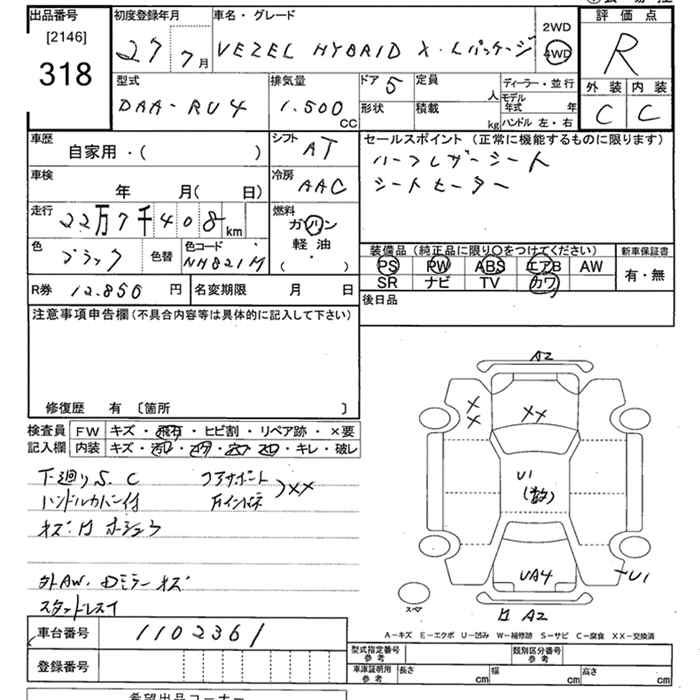 出品番号
[2146]
318
初度登録年月
27 7月
車名・グレード
VEZEL HYBRID X・Lパッケージ
2WD
4WD
評価点
R
外装 内装
C C
型式
DAA-RU4
排気量
1.500 CC
ドア 5
形状
定員 人
積載 kg
ディーラー・並行
モデル年式 年
ハンドル 左・右
車歴
自家用・( )
シフト
AT
セールスポイント (正常に機能するものに限ります)
ハーフレザーシート
シートヒーター
車検
年 月( 日)
冷房
AAC
走行
22万7千408km
燃料
ガソリン
軽油
( ・ )
色
ブラック
色替
色コード
NH821M
装備品 (純正品に限り○をつけてください)
PS PW ABS エアB AW
SR ナビ TV カワ
新車保証書
有・無
R券 12.850 円
名変期限 月 日
後日品
注意事項申告欄 (不具合内容等は具体的に記入して下さい)
修復歴 有 〔箇所 〕
検査員 FW キズ・飛石・ヒビ割・リペア跡・×要
記入欄 内装 キズ・ キレ・破レ
下廻りS.C
コアサポート
ハンドルカバー付
インパネ
XX
キズ・
外AW・Dミラーキズ
スタッドレス
A2
XX
XX
U1
(多数)
UA4
U1
A2
スペア
A-キズ E-エクボ U-凹み W-補修跡 S-サビ C-腐食 XX-交換済
車台番号 1102361
登録番号
型式指定番号 参考
類別区分番号 参考
車庫証明用 参考
長さ cm
幅 cm
高さ cm
希望出品コーナー